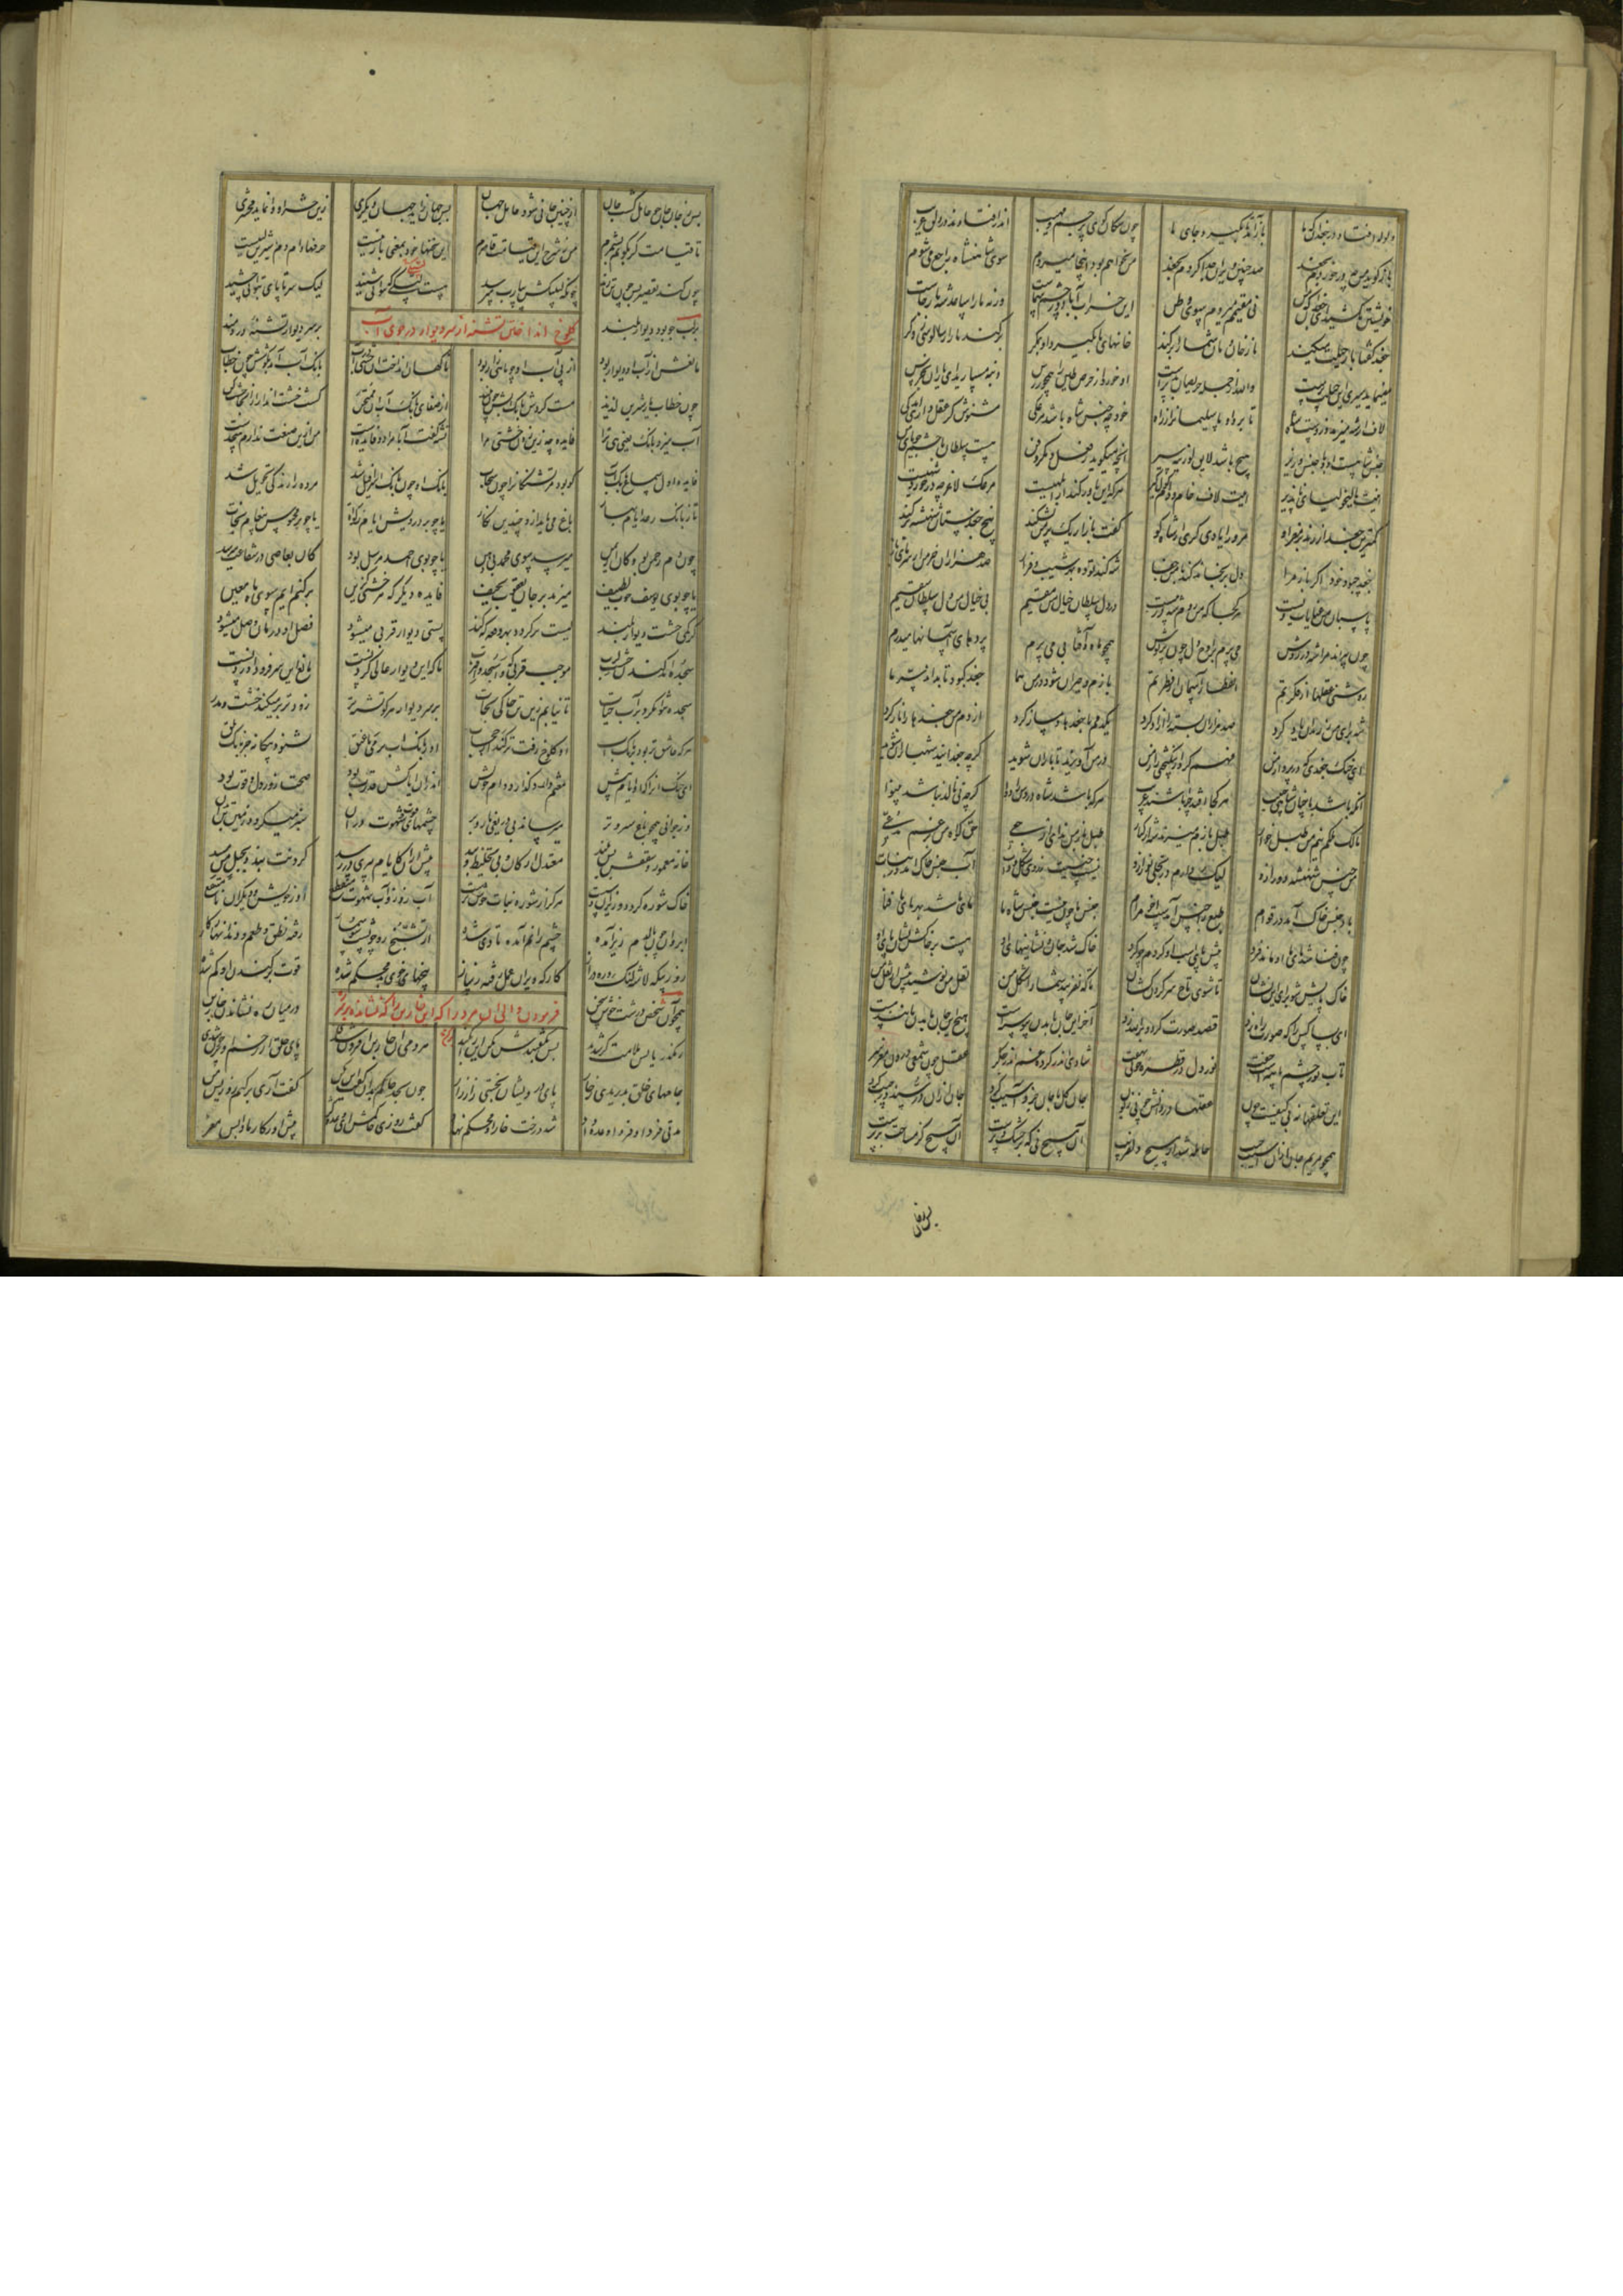 ولوله افتاد در جغدان که ها باز آمد تا بگیرد جای ما چون سگان کوی پر خشم و مهیب اندر افتادند در دلق غریب
باز گوید من چه در خوردم بجغد صد چنین ویران رها کردم بجغد من نخواهم بود اینجا میروم سوی شاهنشاه راجع می شوم
خویشتن مکشید ای جغدان که من نی مقیمم میروم سوی وطن این خراب آباد در چشم شماست ورنه ما را ساعد شه باز جاست
جغد گفتا باز حیلت میکند تا ز خان و مان شما را بر کند خانهای ما بگیرد او بمکر برکند ما را بسالوسی ز وکر
مینماید سیری این حیلت پرست والله از جمله حریصان بترست او خورد از حرص طین را همچو دبس دنبه مسپارید ای یاران بخرس
لاف از شه میزند وز دست شه تا برد او ما سلیمانرا ز راه خود چه جنس شاه باشد مرغکی مشنوش گر عقل داری اندکی
جنس شاهست او و یا جنس وزیر هیچ باشد لایق لوزینه سیر آنچه میگوید ز مکر و فعل و فن هست سلطان با حشم جویای من
اینت مالیخولیای ناپذیر اینت لاف خام و دام گول گیر هر که این باور کند از ابلهیست مرغک لاغر چه در خورد شهیست
کمترین جغد ار زند بر مغز او مر ورا یاری گری از شاه کو گفت باز ار یک پر من بشکند بیخ جغدستان شهنشه بر کند
جغد چه بود خود اگر بازی مرا دل برنجاند کند با من جفا شه کند توده بهر شیب و فراز صد هزاران خرمن از سرهای باز
پاسبان من عنایات ویست هر کجا که من روم شه در پیست در دل سلطان خیال من مقیم بی خیال من دل سلطان سقیم
چون بپراند مرا شه در روش می پرم بر اوج دل چون پرتوش همچو ماه و آفتابی می پرم پردهای آسمانها میدرم
روشنی عقلها از فکرتم انفطار آسمان از فطرتم بازم و حیران شود در من هما جغد کبود تا بداند سر ما
شه برای من ز زندان یاد کرد صد هزاران بسته را آزاد کرد یکدمم با جغدها دمساز کرد از دم من جغدها را باز کرد
ای خنک جغدی که در پرواز من فهم کرد از نیکبختی راز من در من آویزید تا بازان شوید گرچه جغدانید شهبازان شوید
آنکه باشد با چنان شاهی حبیب هر کجا افتد چرا باشد غریب هر که باشد شاه دردش را دوا گرچه نی نالد نباشد بینوا
مالک ملکم نیم من طبل خوار طبل بازم میزند شه از کنار طبل باز من ندای ارجعی حق گواه من برغم مدعی
من نیم جنس شهنشه دور ازو لیک دارم در تجلی نور ازو نیست جنسیت ز روی شکل و ذات آب جنس خاک آمد در نبات
باد جنس خاک آمد در قوام طبع را جنس آمدست آخر مدام جنس ما چون نیست جنس شاه ما مای ما شد بهر مای او فنا
چون فنا شد مای ما او ماند فرد پیش پای اسب او گردم چو گرد خاک شد جان و نشانیهای او هست بر خاکش نشان پای او
خاک پایش شو برای این نشان تا شوی تاج سر گردن کشان تا که نفریبد شما را شکل من نقل من نوشید پیش از نقل من
ای بسا کس را که صورت راه زد قصد صورت کرد و بر الله زد آخر این جان با بدن پیوسته است هیچ این جان با بدن مانند هست
تاب نور چشم با پیه است جفت نور دل در قطره خونی نهفت شادی اندر گرده و غم اندر جگر عقل چون شمعی درون مغز سر
این تعلقها نه بی کیفیست چون عقلها در دانش چونی زبون جان کل با جان جزو آسیب کرد جان از آن دری ستد در جیب کرد
همچو مریم جان از آن آسیب جیب حامله شد از مسیح دلفریب آن مسیحی نی که بر خشک و ترست آن مسیحی کز مساحت برترست
پس ز جان
پس ز جان جان چو حامل گشت جان از چنین جانی شود حامل جهان پس جهان زاید جهان دیگری زین حشر را وا نماید محشری
تا قیامت گر بگویم بشمرم من ز شرح این قیامت قاصرم این سخنها خود بمعنی یاربیست حرفها دام دم شیرین لبیست
چون کند تقصیر پس چون تن زند چونکه لبیکش بیارب میرسد هست لبیکی که نتوانی شنید لیک سر تا پای بتوانی چشید
کلوخ انداختن تشنه از سر دیوار در جوی آب
بر لب جو بود دیواری بلند بر سر دیوار تشنه دردمند
مانعش از آب آن دیوار بود از پی آب او چو ماهی زار بود ناگهان انداخت او خشتی در آب بانگ آب آمد بگوشش چون خطاب
چون خطاب یار شیرین لذیذ مست کرد آن بانگ آبش چون نبیذ از صفای بانگ آب آن ممتحن گشت خشت انداز از آنجا خشت کن
آب میزد بانگ یعنی هی ترا فایده چه زین زدن خشتی مرا تشنه گفت آبا مرا دو فایده است من ازین صنعت ندارم هیچ دست
فایده اول سماع بانگ آب کو بود مر تشنگانرا چون سحاب بانگ او چون بانگ اسرافیل شد مرده را زین زندگی تحویل شد
یا چو بانگ رعد ایام بهار باغ می یابد ازو چندین نگار یا چو بر درویش ایام زکات یا چو بر محبوس پیغام نجات
چون دم رحمن بود کان از یمن میرسد سوی محمد بی دهن یا چو بوی احمد مرسل بود کان بعاصی در شفاعت میرسد
یا چو بوی یوسف خوب لطیف میزند بر جان یعقوب نحیف فایده دیگر که هر خشتی کزین برکنم آیم سوی ماء معین
کز کمی خشت دیوار بلند پست تر گردد بهر دفعه که کند پستی دیوار قربی میشود فصل او درمان وصل میشود
سجده آمد کندن خشت لزب موجب قربی که واسجد واقترب تا که این دیوار عالی گردنست مانع این سر فرود آوردنست
سجده نتوان کرد بر آب حیات تا نیابم زین تن خاکی نجات بر سر دیوار هر کو تشنه تر زودتر بر میکند خشت و مدر
هر که عاشق تر بود بر بانگ آب او کلوخ زفت تر کند از حجاب او ز بانگ آب پر می تا عنق نشنود بیگانه جز بانگ بلق
ای خنک آنرا که او ایام پیش مغتنم دارد گذارد وام خویش اندر آن ایام کش قدرت بود صحت و زور دل و قوت بود
وز جوانی همچو باغ سبز و تر میرساند بی دریغی بار و بر چشمهای قوت و شهوت روان سبز میگردد زمین تن بدان
خانه معمور و سقفش بس بلند معتدل ارکان و بی تخلیط و بند پیش از آن کایام پیری در رسد گردنت بندد بحبل من مسد
خاک شوره گردد و ریزان و سست هرگز از شوره نبات خوش نرست آب زور و آب شهوت منقطع او ز خویش و دیگران نا منتفع
ابروان چون پالدم زیر آمده چشم را نم آمده تاری شده از تشنج رو چو پشت سوسمار رفته نطق و طعم و دندانها ز کار
روز بیگه لاشه لنگ و ره دراز کارگه ویران عمل رفته ز ساز بیخهای خوی بد محکم شده قوت برکندن او کم شده
فرمودن والی آن مرد را که آن خاربن را که نشانده بر کن
همچو آن شخص درشت خوش سخن در میان ره نشاند او خاربن
ره گذریانش ملامت گر شدند بس بگفتندش بکن این را نکند هر دمی آن خاربن افزون شدی پای خلق از زخم او پر خون شدی
جامهای خلق بدریدی ز خار پای درویشان بخستی زار زار چون بجد حاکم بدو گفت این بکن گفت آری بر کنم روزیش من
مدتی فردا و فردا وعده داد شد درخت خار او محکم نهاد گفت روزی حاکمش ای وعده کژ پیش آ در کار ما واپس مغژ